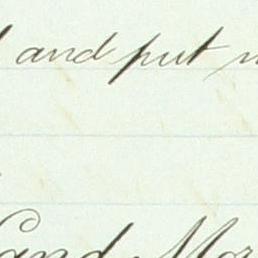 and put
and Mor